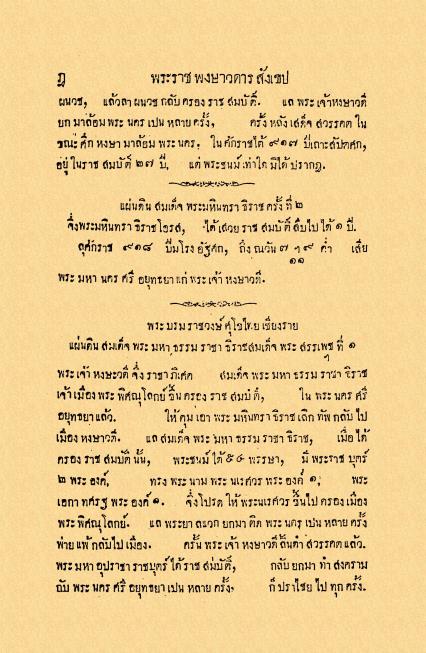 ฎ พระราช พงษาวดาร สังเขป
ผนวช, แล้วลา ผนวช กลับ ครอง ราช สมบัติ. แล พระ เจ้าหงษาวดี
ยก มาล้อม พระ นคร เปน หลาย ครั้ง, ครั้ง หลัง เสด็จ สวรรคต ใน
ขณะ ศึก หงษา มาล้อม พระ นคร. ใน ศักราชได้ ๙๑๗ ปีเถาะสัปตศก,
อยู่ ในราช สมบัติ ๒๗ ปี. แต่ พระชนม์ เท่าใด มิได้ ปรากฎ.
แผ่นดิน สมเด็จ พระมหินทรา ธิราช ครั้ง ที่ ๒
จึ่งพระมหินทรา ธิราชโอรส, ได้เสวย ราช สมบัติ สืบไป ได้ ๑ ปี.
ลุศักราช ๙๑๘ ปีมโรง อัฐศก, ถึง ณวัน ๗ ๆ ๙ ค่ำ เสีย
๑๑
พระ มหา นคร ศรี อยุทธยา แก่ พระ เจ้า หงษาวดี.
พระ บรม ราชวงษ์ ศุโขไทย เชียงราย
แผ่นดิน สมเด็จ พระ มหา ธรรม ราชา ธิราชสมเด็จ พระ สรรเพช ที่ ๑
พระ เจ้า หงษะวดี จึ่ง ราชา ภิเศก สมเด็จ พระ มหา ธรรม ราชา ธิราช
เจ้า เมือง พระ พิศณุโลกย์ ขึ้น ครอง ราช สมบัติ, ใน พระ นคร ศรี
อยุทธยา แล้ว. ให้ คุม เอา พระ มหินทรา ธิราช เลิก ทัพ กลับ ไป
เมือง หงษาวดี. แล สมเด็จ พระ มหา ธรรม ราชา ธิราช, เมื่อ ได้
ครอง ราช สมบัติ นั้น, พระชนม์ ได้ ๕๔ พรรษา, มี พระราช บุตร์
๒ พระ องค์, ทรง พระ นาม พระ นเรศวร พระ องค์ ๑, พระ
เอกา ทศรฐ พระ องค์ ๑. จึ่งโปรด ให้ พระนเรศวร ขึ้นไป ครอง เมือง
พระ พิศณุโลกย์. แล พระยา ลแวก ยกมา ติด พระ นคร เปน หลาย ครั้ง
พ่าย แพ้ กลับไป เมือง. ครั้น พระ เจ้า หงษาวดี ลิ้นดำ สวรรคต แล้ว.
พระ มหา อุปราชา ราชบุตร์ ได้ ราช สมบัติ, กลับ ยกมา ทำ สงคราม
กับ พระ นคร ศรี อยุทธยา เปน หลาย ครั้ง, ก็ ปราไชย ไป ทุก ครั้ง.